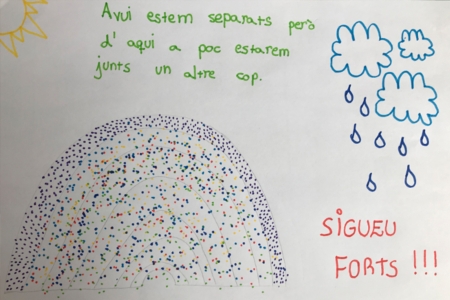 Avui estem separats però
d'aqui a poc estarem
junts un altre cop.
SiGUEU
FORTS !!!